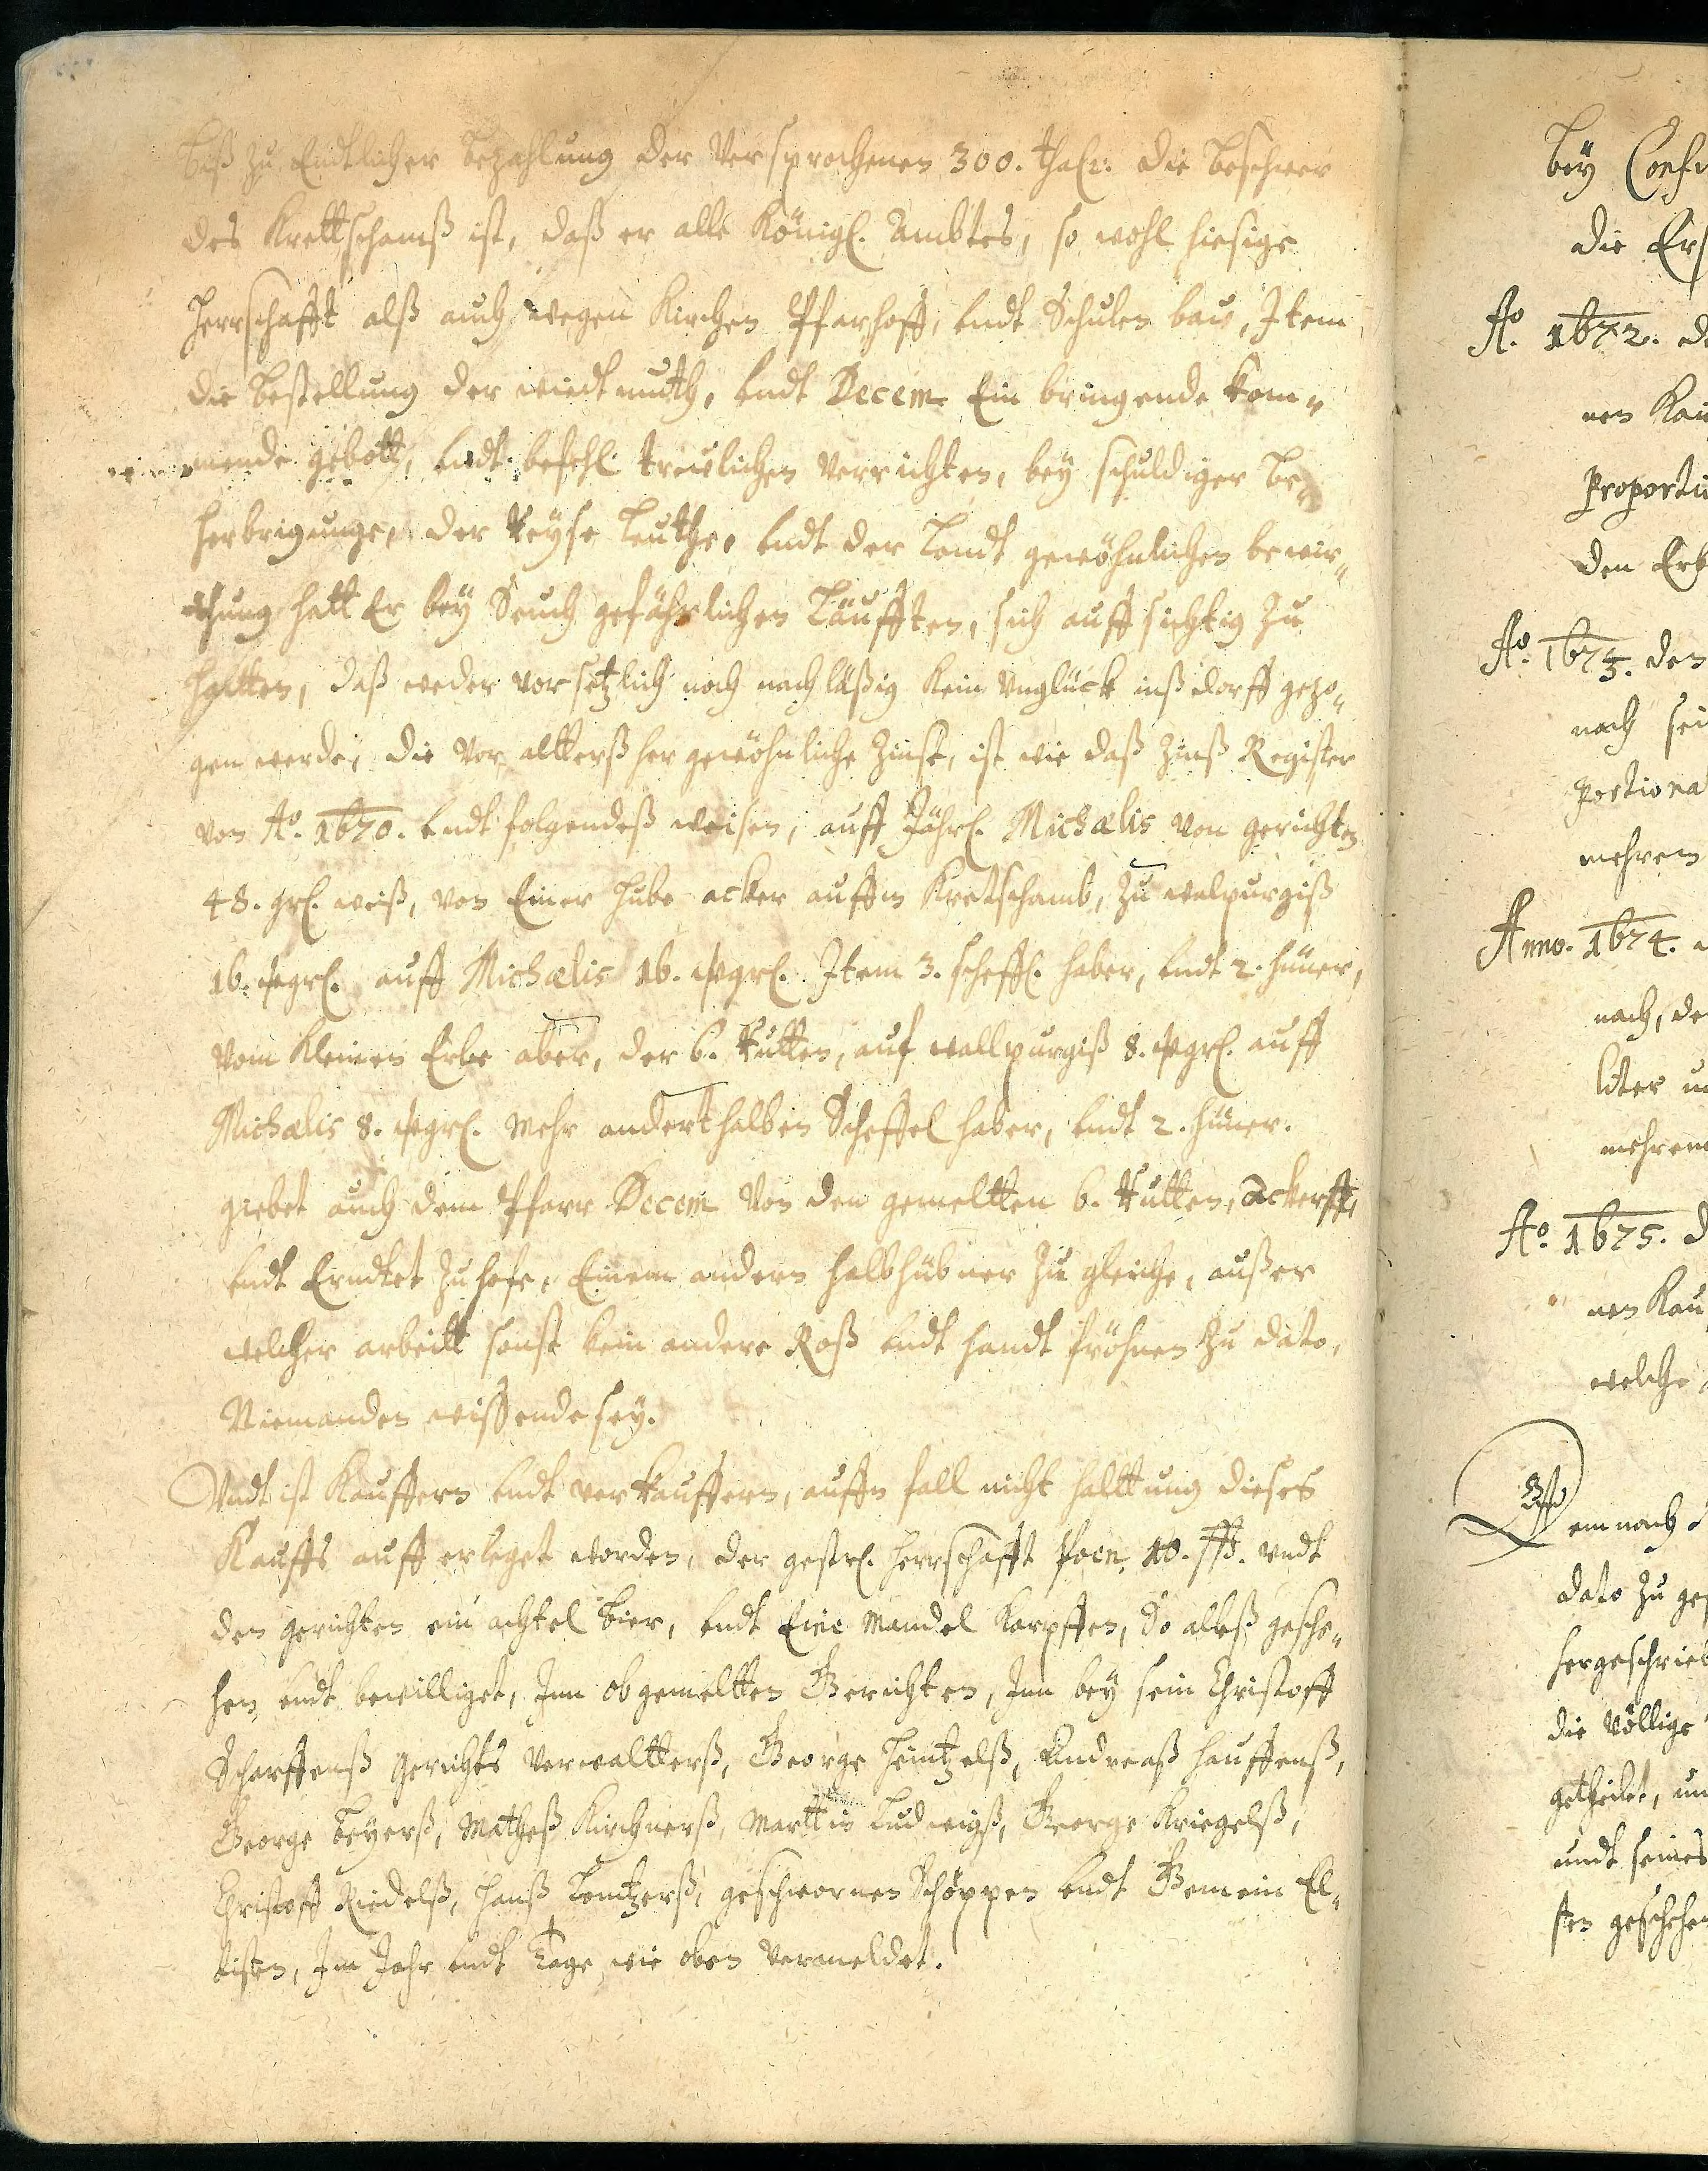 biß zu Endtlicher bezahlung der Versprochenen 300. thalr. die beschwer
des Krettschamß ist, daß er alle Königl. Ambtes, so wohl hiesige
Herrschafft alß auch wegen Kirchen Pfarhoff, undt Schulen bau, Item
die bestellung der wiedtmuth, undt Decem Ein bringende kom-
mende gebott, undt befehl treulichen Verrichten, bey schuldiger be-
herbrigunge, der Reyse Leuthe, undt der Landt gewöhnlichen bewir-
thung hatt Er bey Seuch gefährlichen Läufften, sich auffsichtig zu
halten, daß weder vorsetzlich noch nachläßig kein Unglück inß dorff gezo-
gen werde, die vor altterß her gewöhnliche Zinse, ist wie daß Zinß Register
von Ao. 1670. undt folgendeß weisen, auff Jährl. Michaelis von gerichten
48. grl. weiß, von Einer Hube acker auffm Kretschamb, zu walpurgiß
16. wgrl. auff Michaelis 16. wgrl. Item 3. scheffl. haber, undt 2. hüner,
vom kleinen Erbe aber, der 6. Rutten, auf wallpurgiß 8. wgrl. auff
Michalis 8. wgrl. Mehr anderthalben Scheffel haber, undt 2. hüner.
giebet auch dem Pfarr Decem Von den gemeltten 6. Rutten, Ackerfft,
undt Erndtet zu hofe, Einem andern halbhübner zu gleiche, außer
welcher arbeitt sonst kein andere Roß undt handt fröhnen zu dato,
Niemanden wissende sey.
Undt ist Kauffern undt verkauffern, auffn fall nicht halttung dieses
Kauffs aufferleget worden, der gestrl. Herrschafft Poen, 10. ßß. undt
den gerichten ein achtel Bier, undt Eine Mandel Karpffen, So alleß gesche-
hen undt bewilliget, Inn obgemeltten Gerichten, Inn bey sein Christoff
Scharffenß Gerichts Verwaltterß, George Heintzelß, Andreaß hauffenß,
George Beyerß, Matheß Kirchnerß, Marttin Ludwigß, George Kriegelß,
Christoff Riedelß, Hanß Lentzerß, geschwornen Schöppen undt Gemein El-
tisten, Im Jahr undt Tage, wie oben Vermeldet.
bey
die
Ao. 1672.
nen
Proporti
den Erb
Ao. 1673. den
nach sei
portiona
mehrem
Anno. 1674.
nach, de
liter
mehrem
Ao. 1675.
nen Kau
welche
Demnach
dato zu ge
hergeschrieb
die völlige
getheilet, un
undt seines
sten geschehen